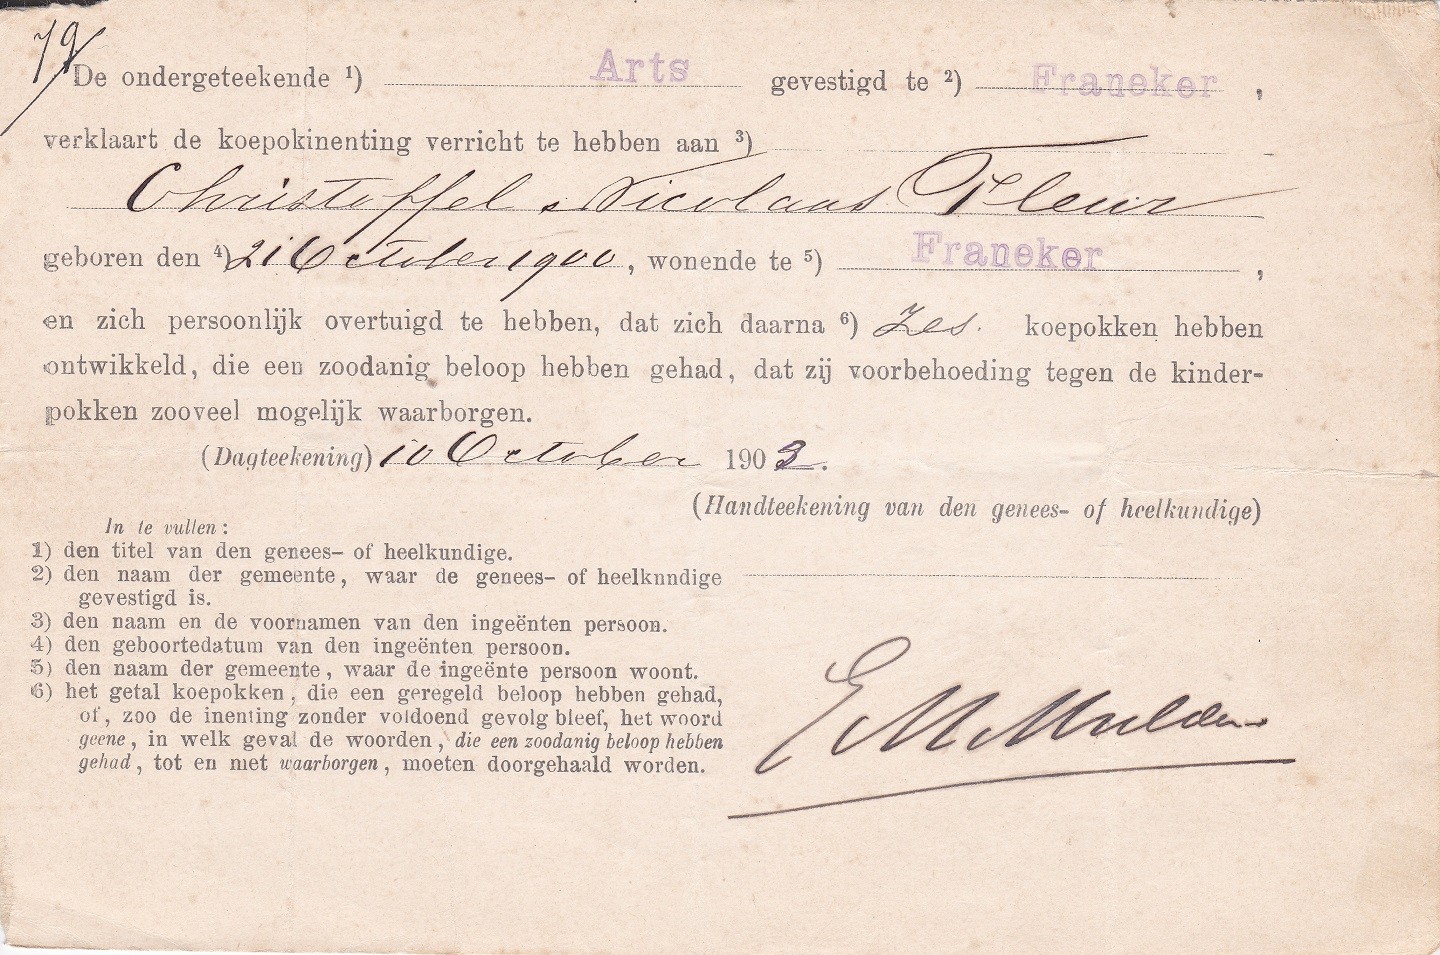 79
De ondergeteekende 1) Arts gevestigd te 2) Franeker,
verklaart de koepokinenting verricht te hebben aan 3)
Christoffel Nicolaas Fleur
geboren den 4) 21 October 1900, wonende te 5) Franeker,
en zich persoonlijk overtuigd te hebben, dat zich daarna 6) zes. koepokken hebben
ontwikkeld, die een zoodanig beloop hebben gehad, dat zij voorbehoeding tegen de kinder-
pokken zooveel mogelijk waarborgen.
(Dagteekening) 10 October 1903.
(Handteekening van den genees- of heelkundige)
In te vullen:
1) den titel van den genees- of heelkundige.
2) den naam der gemeente, waar de genees- of heelknndige
gevestigd is.
3) den naam en de voornamen van den ingeënten persoon.
4) den geboortedatum van den ingeënten persoon.
5) den naam der gemeente, waar de ingeënte persoon woont.
6) het getal koepokken, die een geregeld beloop hebben gehad,
of, zoo de inenting zonder voldoend gevolg bleef, het woord
geene, in welk geval de woorden, die een zoodanig beloop hebben
gehad, tot en met waarborgen, moeten doorgehaald worden.
E M Mulder